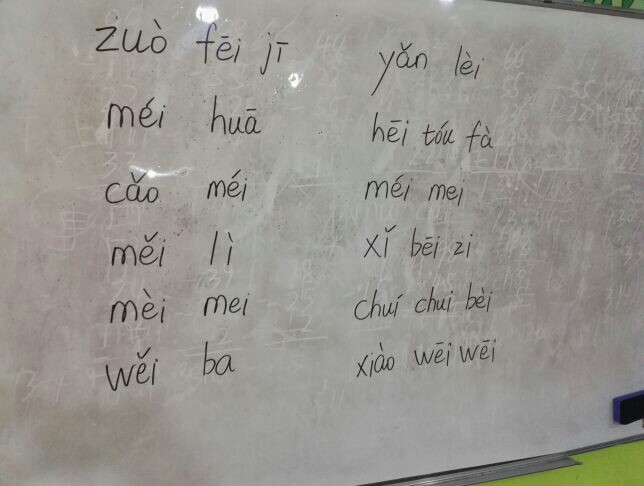 zuò fēi jī
méi huā
cǎo méi
měi lì
mèi mei
wěi ba
yǎn lèi
hēi tóu fà
méi mei
xǐ bēi zi
chuí chui bèi
xiào wēi wēi